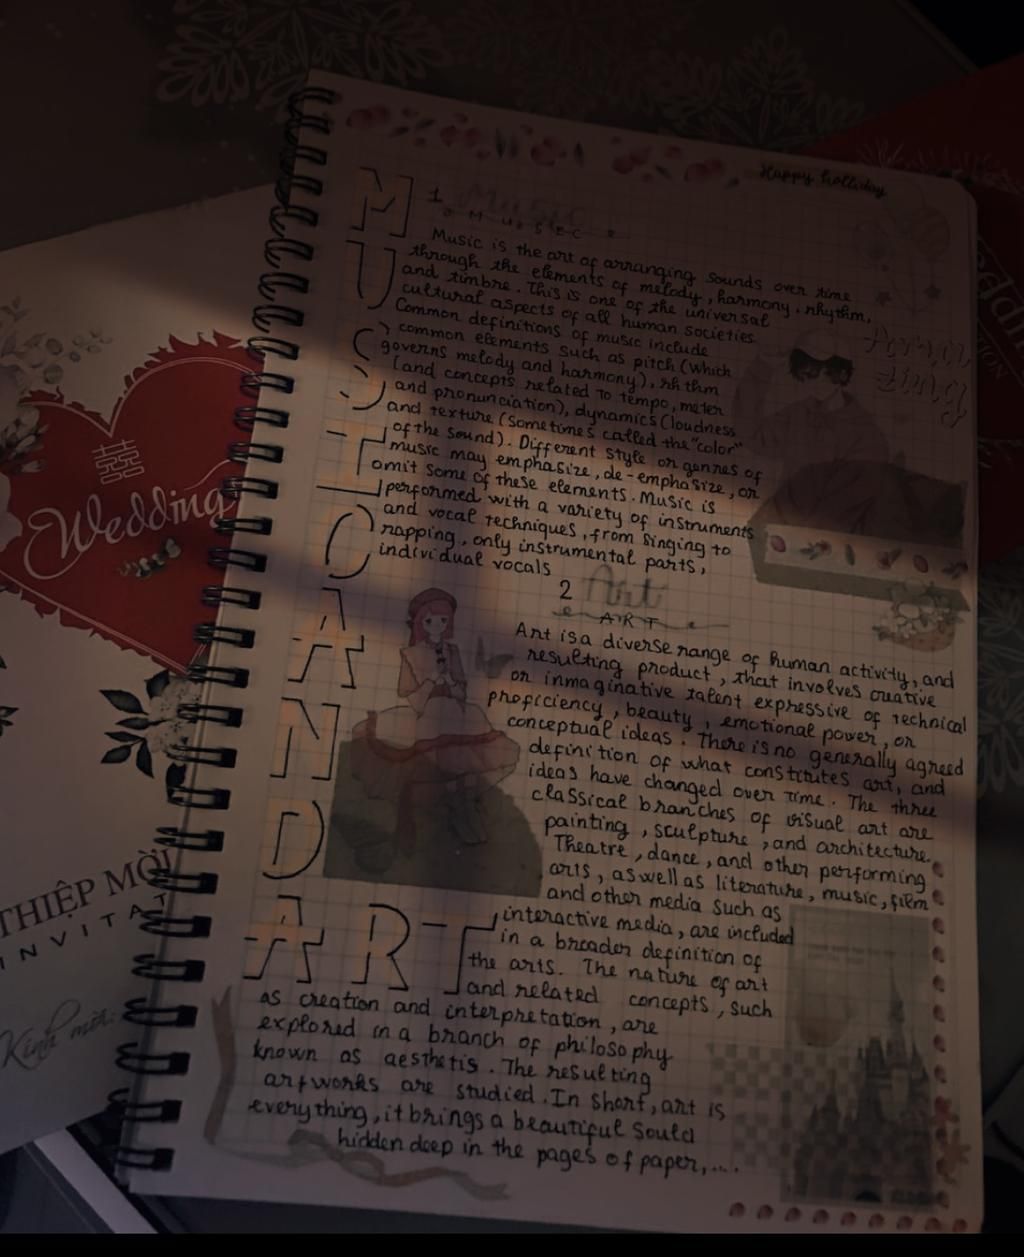 Happy holliday
MUSIC AND ART
1 Music
MUSEC
Music is the art of arranging sounds over time
through the elements of melody, harmony, rhythm,
and timbre. This is one of the universal
cultural aspects of all human societies
Common definitions of music include
common elements such as pitch (which
governs melody and harmony), rhthm
(and concepts related to tempo, meter
and pronunciation), dynamics (loudness
and texture (sometimes called the "color"
of the sound). Different style or genres of
music may emphasize, de-emphasize, or
omit some of these elements. Music is
performed with a variety of instruments
and vocal techniques, from singing to
rapping, only instrumental parts,
individual vocals
Ama
zing
2 Art
ART
Art is a diverse range of human activity, and
resulting product, that involves creative
or inmaginative talent expressive of technical
proficiency, beauty, emotional power, or
conceptual ideas. There is no generally agreed
definition of what constitutes art, and
ideas have changed over time. The three
classical branches of visual art are
painting, sculpture, and architecture.
Theatre, dance, and other performing
arts, as well as literature, music, film
and other media such as
interactive media, are included
in a broader definition of
the arts. The nature of art
and related concepts, such
as creation and interpretation, are
explored in a branch of philosophy
known as aesthetis. The resulting
artworks are studied. In short, art is
everything, it brings a beautiful sould
hidden deep in the pages of paper,...
囍
Wedding
THIỆP MỜI
INVITAT
Kính mời:
eddin
TION